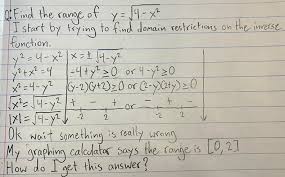 Q: Find the range of y = √4-x²
I start by trying to find domain restrictions on the inverse
function.
y² = 4-x² | x = ± √4-y²
y²+x² = 4 | -4+y² ≥ 0 or 4-y² ≥ 0
x² = 4-y² | (y-2)(y+2) ≥ 0 or (2-y)(2+y) ≥ 0
√x² = √4-y² | + - + or - + -
|x| = √4-y² | -2 2 -2 2
Ok wait something is really wrong
My graphing calculator says the range is [0,2]
How do I get this answer?